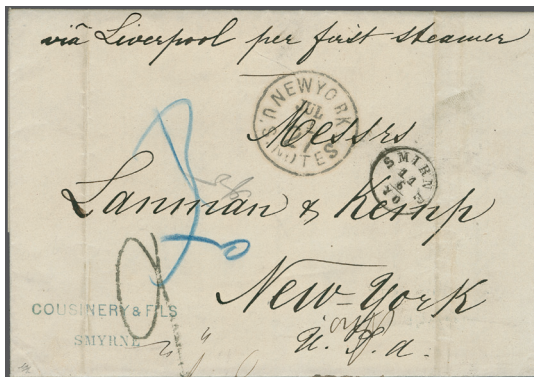 viã Liverpool per first steamer
NEW YORK
JUL
U.S. NOTES
Messrs
SMIRNE
Lanman & Kemp
New-York
U. S. a.
COUSINERY & FILS
SMYRNE